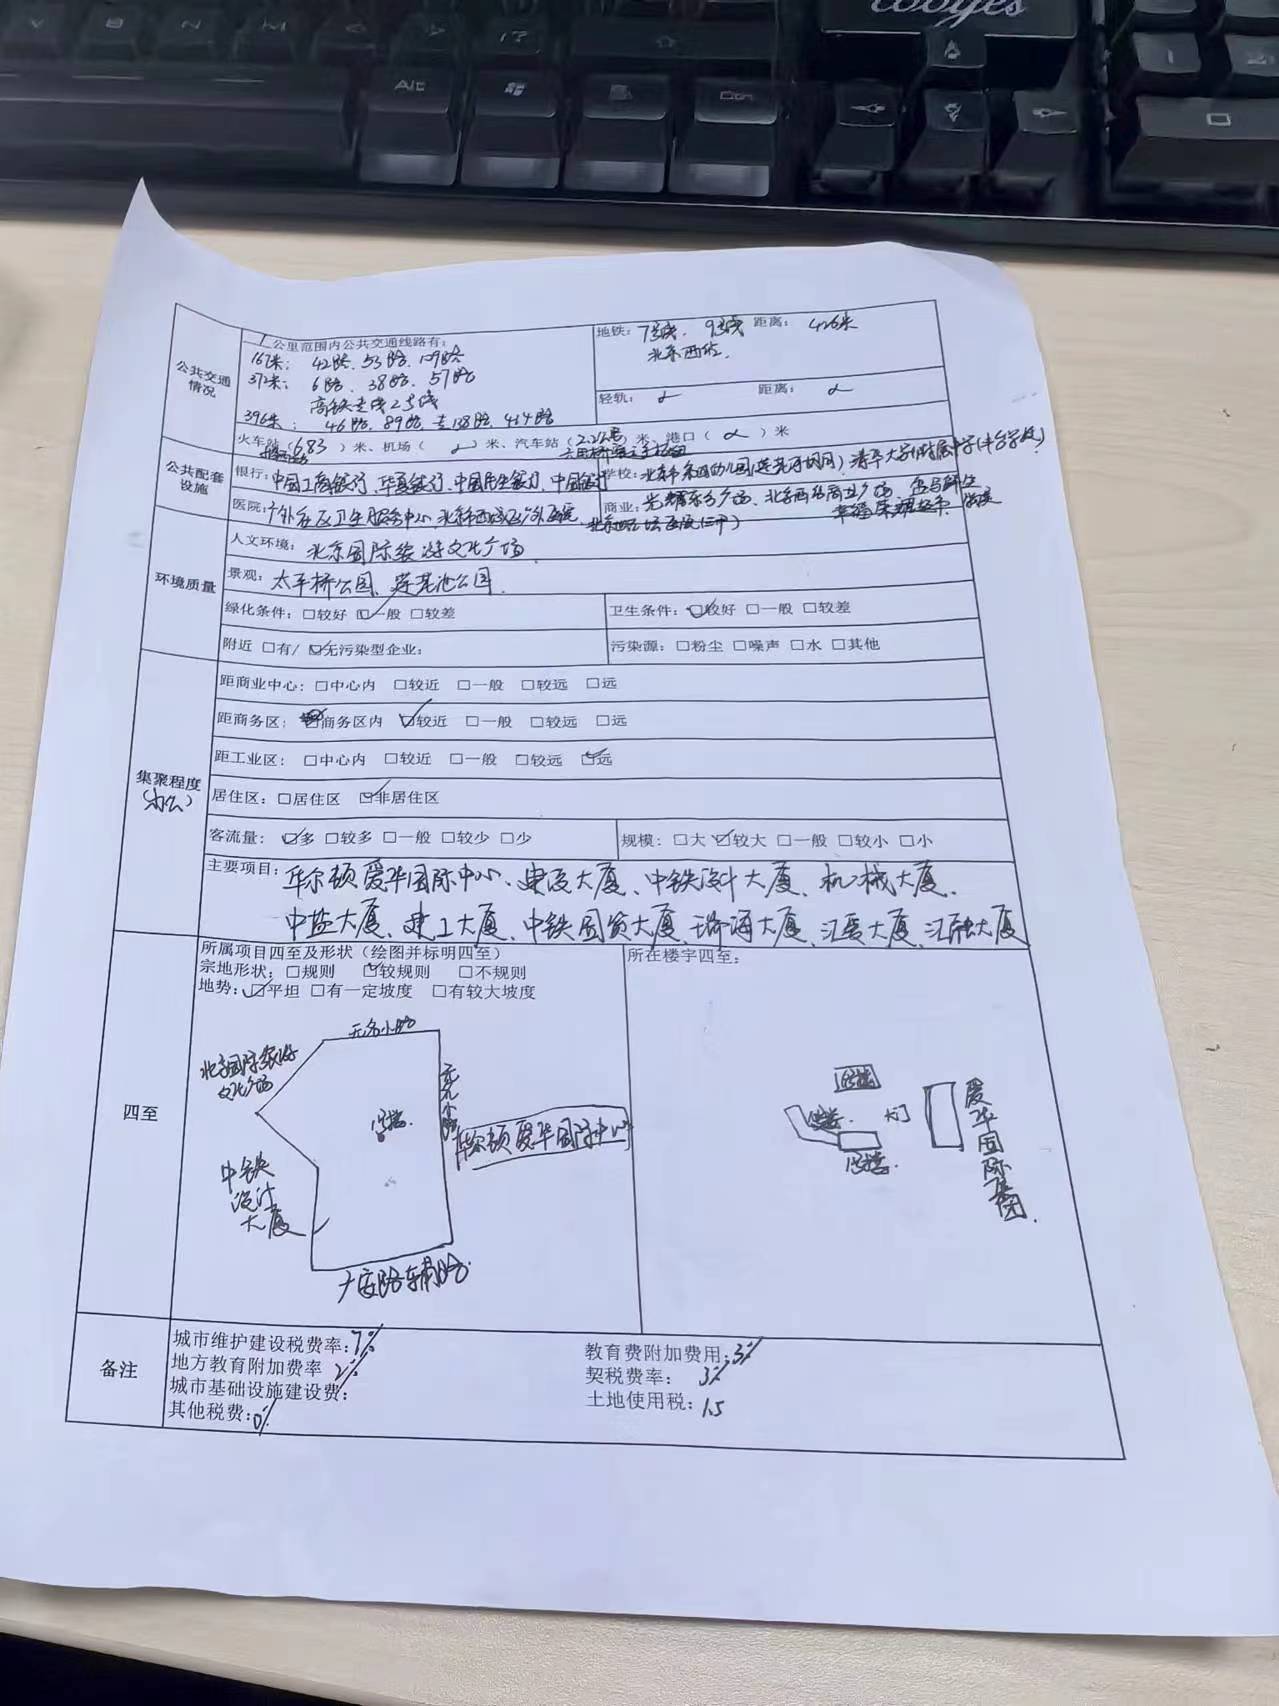 looyes
V B N M
Alt
Ctrl
1
公共交通情况
1公里范围内公共交通线路有:
167米: 42路、53路、109路
372米: 6路、38路、57路
高铁专线2号线
396米: 46路、89路、专138路、414路
地铁: 7号线、9号线 距离: 426米
北京西站
轻轨: 距离:
火车站(683)米、机场( )米、汽车站(2.2公里)米、港口( )米
六里桥客运主枢纽
公共配套设施
银行: 中国工商银行、华夏银行、中国民生银行、中国银行
学校: 北京市 清华大学附属中学(丰台学校)
医院: 广外社区卫生服务中心、北京西城区广外医院
商业: 光耀东方广场、北京西站商业广场
环境质量
人文环境: 北京国际旅游文化广场
景观: 太平桥公园、莲花池公园
绿化条件: □较好 ☑一般 □较差
卫生条件: ☑较好 □一般 □较差
附近 □有/ ☑无污染型企业:
污染源: □粉尘 □噪声 □水 □其他
集聚程度
(办公)
距商业中心: □中心内 □较近 □一般 □较远 □远
距商务区: 商务区内 ☑较近 □一般 □较远 □远
距工业区: □中心内 □较近 □一般 □较远 ☑远
居住区: □居住区 ☑非居住区
客流量: ☑多 □较多 □一般 □较少 □少
规模: □大 ☑较大 □一般 □较小 □小
主要项目: 华尔顿爱华国际中心、建设大厦、中铁设计大厦、机械大厦、
中盐大厦、建工大厦、中铁国资大厦、瑞海大厦、汇爱大厦、汇融大厦
四至
所属项目四至及形状(绘图并标明四至)
宗地形状: □规则 ☑较规则 □不规则
地势: ☑平坦 □有一定坡度 □有较大坡度
无名小路
北京国际旅游
文化广场
无名小路
1号楼
华尔顿爱华国际中心
中铁
设计
大厦
广安路辅路
所在楼宇四至:
大门
爱华国际集团
备注
城市维护建设税费率: 7%
地方教育附加费率 2%
城市基础设施建设费:
其他税费: 0%
教育费附加费用: 3%
契税费率: 3%
土地使用税: 1.5